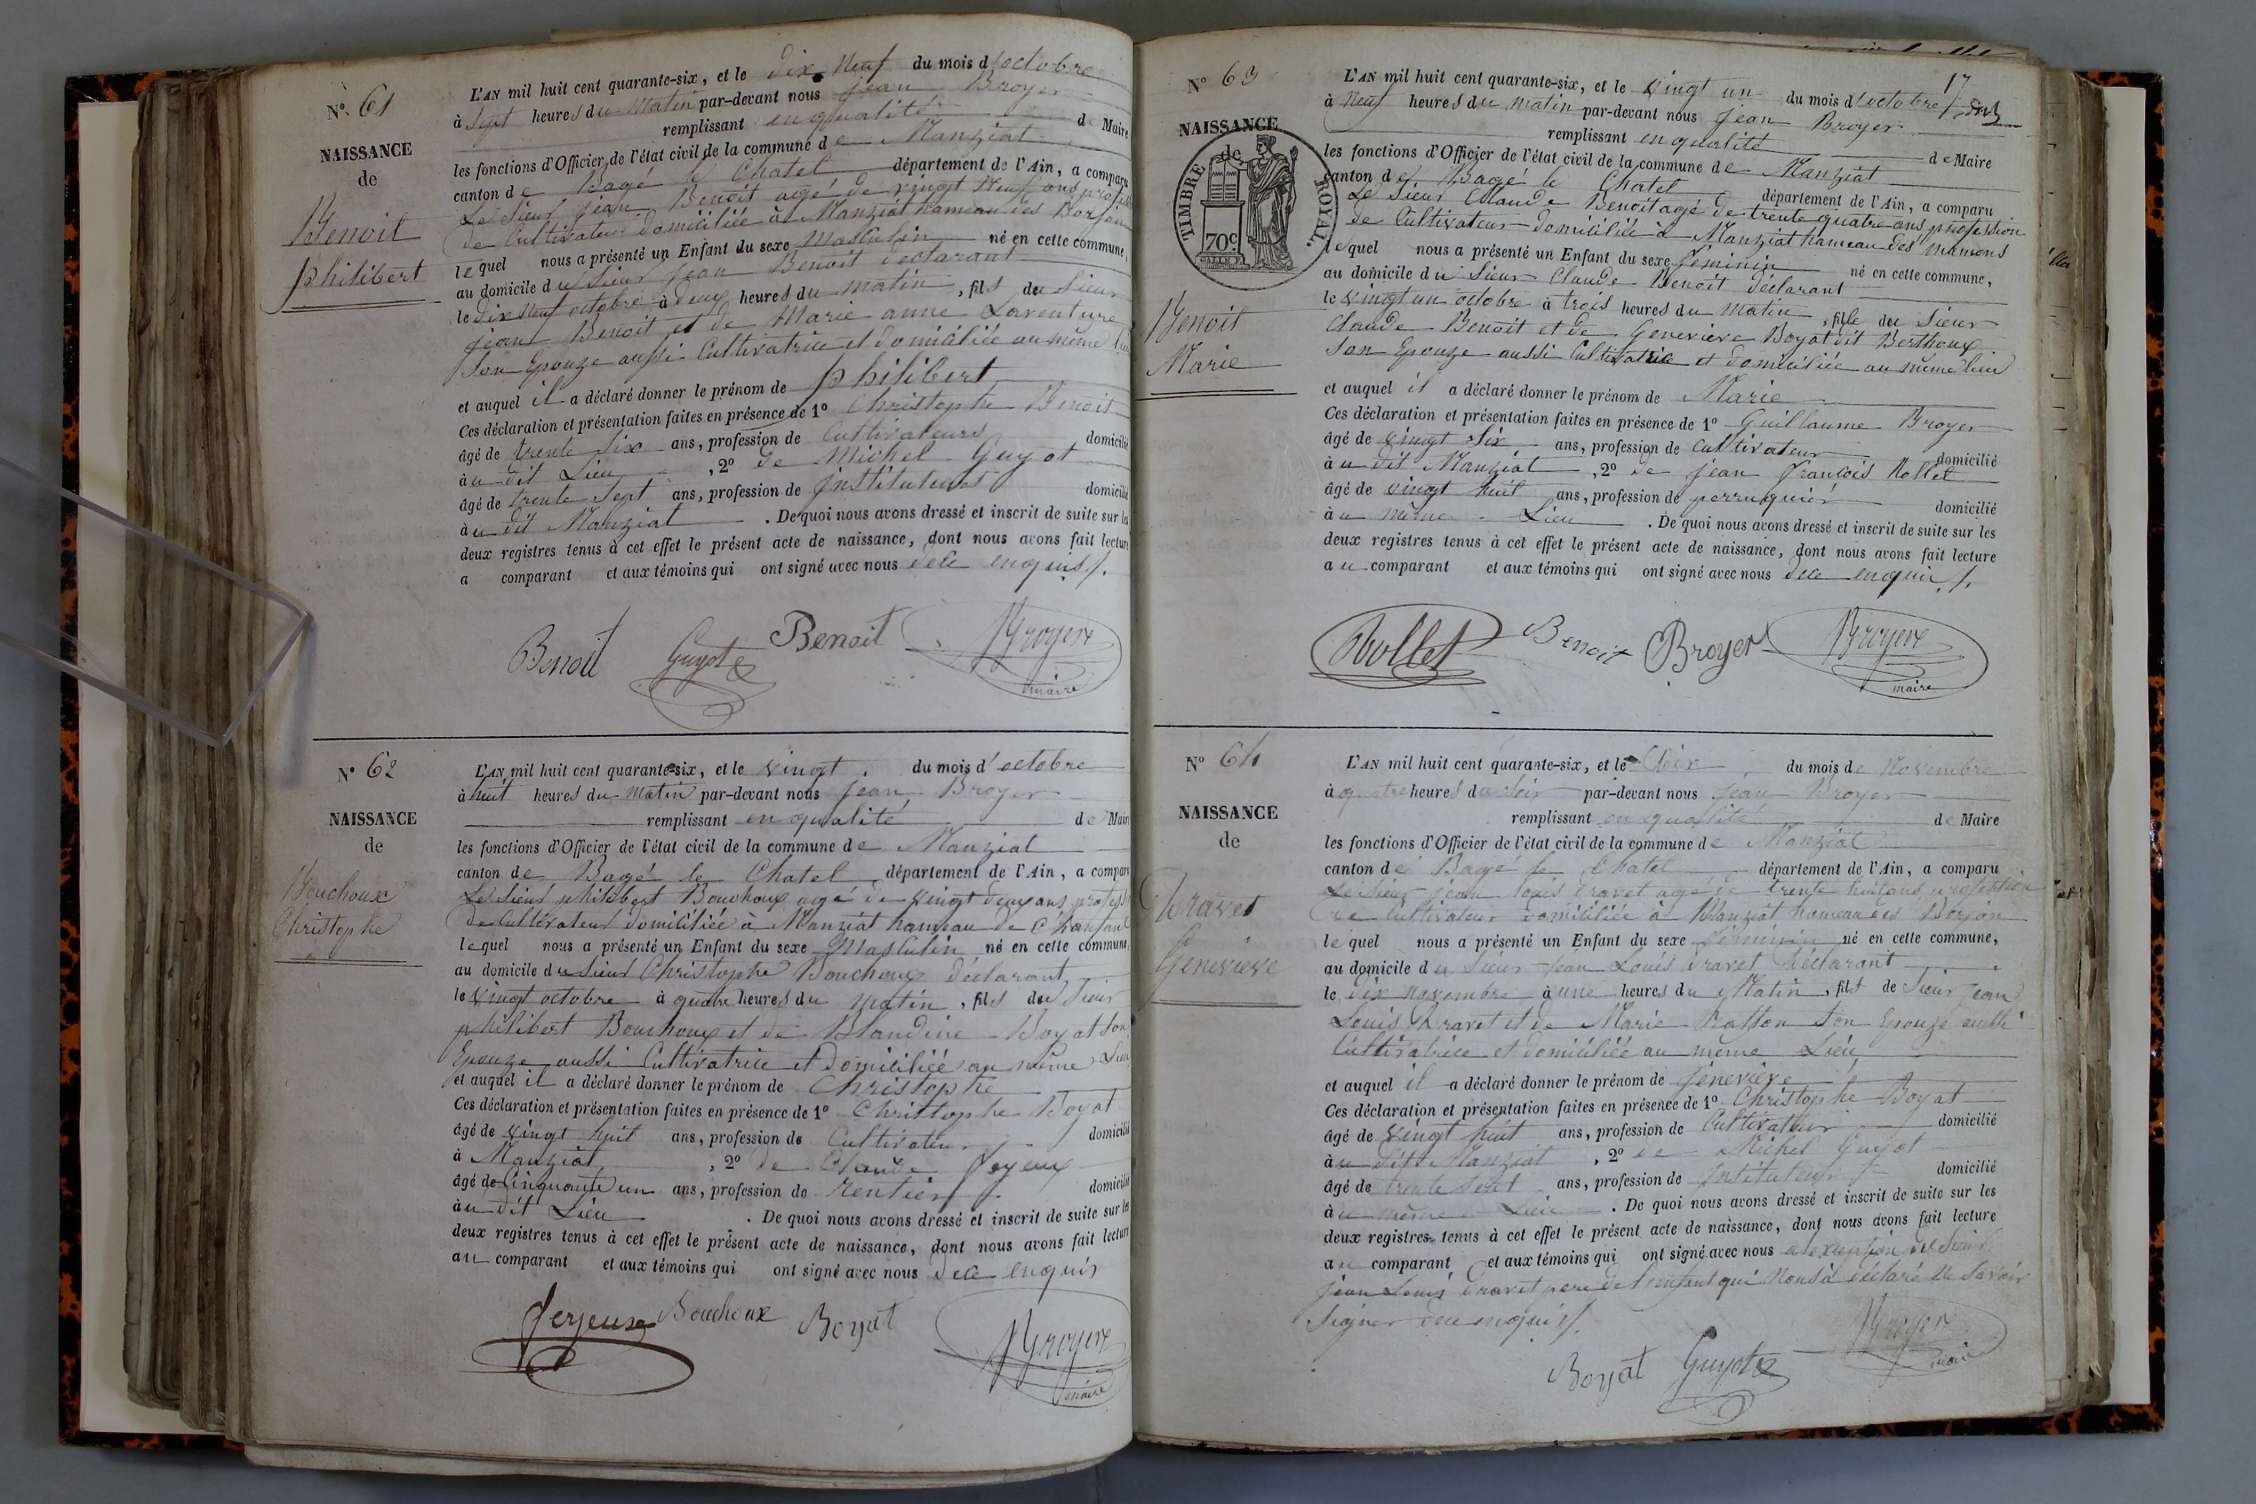 N° 61
NAISSANCE
de
Benoit
philibert
L'AN mil huit cent quarante-six, et le dix Neuf du mois d'octobre
à sept heures du matin par-devant nous jean Broyer
remplissant en qualité de Maire
les fonctions d'Officier de l'état civil de la commune de Manziat
canton de Bagé le Chatel département de l'Ain, a comparu
Le Sieur jean Benoit agé de vingt Neuf ans profession
de Cultivateur domiciliée à Manziat hameau des Borjon
lequel nous a présenté un Enfant du sexe masculin né en cette commune,
au domicile du Sieur jean Benoit déclarant
le dix Neuf octobre à deux heures du matin, fils du Sieur
jean Benoit et de Marie anne Laventure
Son Epouze aussi Cultivatrice et domiciliée au même lieu
et auquel il a déclaré donner le prénom de philibert
Ces déclaration et présentation faites en présence de 1° Christophe Benoit
âgé de trente six ans, profession de Cultivateurs domicilié
à u dit Lieu, 2° de Michel Guyot
âgé de trente Sept ans, profession de jnstituteur domicilié
à u dit Manziat. De quoi nous avons dressé et inscrit de suite sur les
deux registres tenus à cet effet le présent acte de naissance, dont nous avons fait lecture
a comparant et aux témoins qui ont signé avec nous dece enquis /.
Benoit Guyot Benoit Broyer
maire
N° 62
NAISSANCE
de
Bouchoux
Christophe
L'AN mil huit cent quarante-six, et le vingt du mois d'octobre
à huit heures du matin par-devant nous jean Broyer
remplissant en qualité de Maire
les fonctions d'Officier de l'état civil de la commune de Manziat
canton de Bagé le Chatel département de l'Ain, a comparu
Le Sieur philibert Bouchoux agé de vingt deux ans profess
de Cultivateur domiciliée à Manziat hameau de Chanfant
lequel nous a présenté un Enfant du sexe Masculin né en cette commune,
au domicile du Sieur Christophe Bouchoux déclarant
le vingt octobre à quatre heures du matin, fils du Sieur
philibert Bouchoux et de Blandine Boyat Son
Epouze aussi Cultivatrice et domiciliée au même Lieu
et auquel il a déclaré donner le prénom de Christophe
Ces déclaration et présentation faites en présence de 1° Christophe Boyat
âgé de vingt huit ans, profession de Cultivateur domicilié
à Manziat, 2° de Claude feyeux
âgé de Cinquante un ans, profession de rentier domicilié
à u dit Lieu. De quoi nous avons dressé et inscrit de suite sur les
deux registres tenus à cet effet le présent acte de naissance, dont nous avons fait lecture
au comparant et aux témoins qui ont signé avec nous dece enquis
Bouchoux Boyat Broyer
maire
17
N° 63
NAISSANCE
de
TIMBRE ROYAL.
70c.
Benoit
Marie
L'AN mil huit cent quarante-six, et le vingt un du mois d'octobre
à Neuf heures du matin par-devant nous jean Broyer
remplissant en qualité de Maire
les fonctions d'Officier de l'état civil de la commune de Manziat
canton de Bagé le Chatel département de l'Ain, a comparu
Le Sieur Claude Benoit agé de trente quatre ans profession
de Cultivateur domiciliée à Manziat hameau des mamons
lequel nous a présenté un Enfant du sexe féminin né en cette commune,
au domicile du Sieur Claude Benoit déclarant
le vingt un octobre à trois heures du matin, fille du Sieur
Claude Benoit et de Geneviève Boyat dit Berthoux
Son Epouze aussi Cultivatrice et domiciliée au même lieu
et auquel il a déclaré donner le prénom de Marie
Ces déclaration et présentation faites en présence de 1° Guillaume Broyer
âgé de vingt six ans, profession de cultivateur domicilié
à u dit Manziat, 2° de jean françois Rollet
âgé de vingt huit ans, profession de perruquier domicilié
à u même Lieu. De quoi nous avons dressé et inscrit de suite sur les
deux registres tenus à cet effet le présent acte de naissance, dont nous avons fait lecture
a u comparant et aux témoins qui ont signé avec nous dece enquis /.
Rollet Benoit Broyer Broyer
maire
N° 64
NAISSANCE
de
Dravet
Geneviève
L'AN mil huit cent quarante-six, et le Dix du mois de Novembre
à quatre heures du Soir par-devant nous jean Broyer
remplissant en qualité de Maire
les fonctions d'Officier de l'état civil de la commune de Manziat
canton de Bagé le Chatel département de l'Ain, a comparu
Le Sieur jean louis dravet agé de trente huit ans profession
de Cultivateur domiciliée à Manziat hameau des Borjon
lequel nous a présenté un Enfant du sexe féminin né en cette commune,
au domicile du Sieur jean Louis dravet déclarant
le dix novembre à une heures du Matin, fils de Sieur jean
Louis Dravet et de Marie Ratton Son Epouze aussi
Cultivatrice et domiciliée au même Lieu
et auquel il a déclaré donner le prénom de Geneviève
Ces déclaration et présentation faites en présence de 1° Christophe Boyat
âgé de vingt huit ans, profession de Cultivateur domicilié
à u dit Manziat, 2° de Michel Guyot
âgé de trente sept ans, profession de jnstituteur domicilié
à u même Lieu. De quoi nous avons dressé et inscrit de suite sur les
deux registres tenus à cet effet le présent acte de naissance, dont nous avons fait lecture
au comparant et aux témoins qui ont signé avec nous a exception du Sieur
jean Louis dravet pere de l'enfant qui Nous à déclaré Ne Savoir
Signer dece enquis /.
Boyat Guyot Broyer
maire